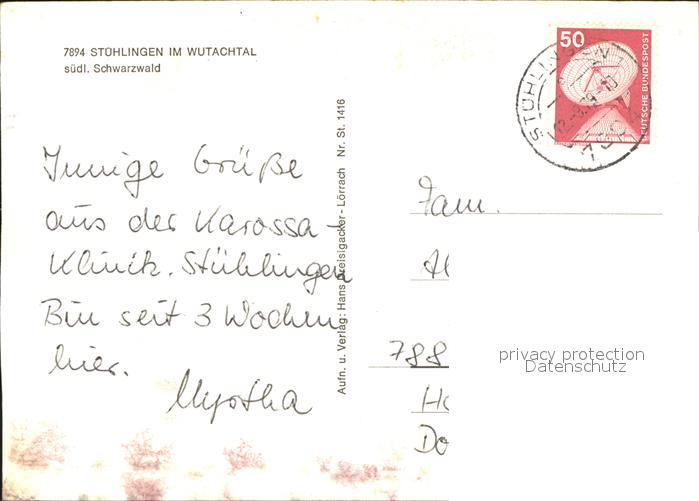 7894 STÜHLINGEN IM WUTACHTAL
südl. Schwarzwald
Innige Grüße
aus der Karossa-
Klinik. Stühlingen
Bin seit 3 Wochen
hier.
Myrtha
Aufn. u. Verlag: Hans Dreisigacker - Lörrach Nr. St. 1416
50
DEUTSCHE BUNDESPOST
STÜHLINGEN
Fam.
Al
788
Ho
Do
privacy protection
Datenschutz